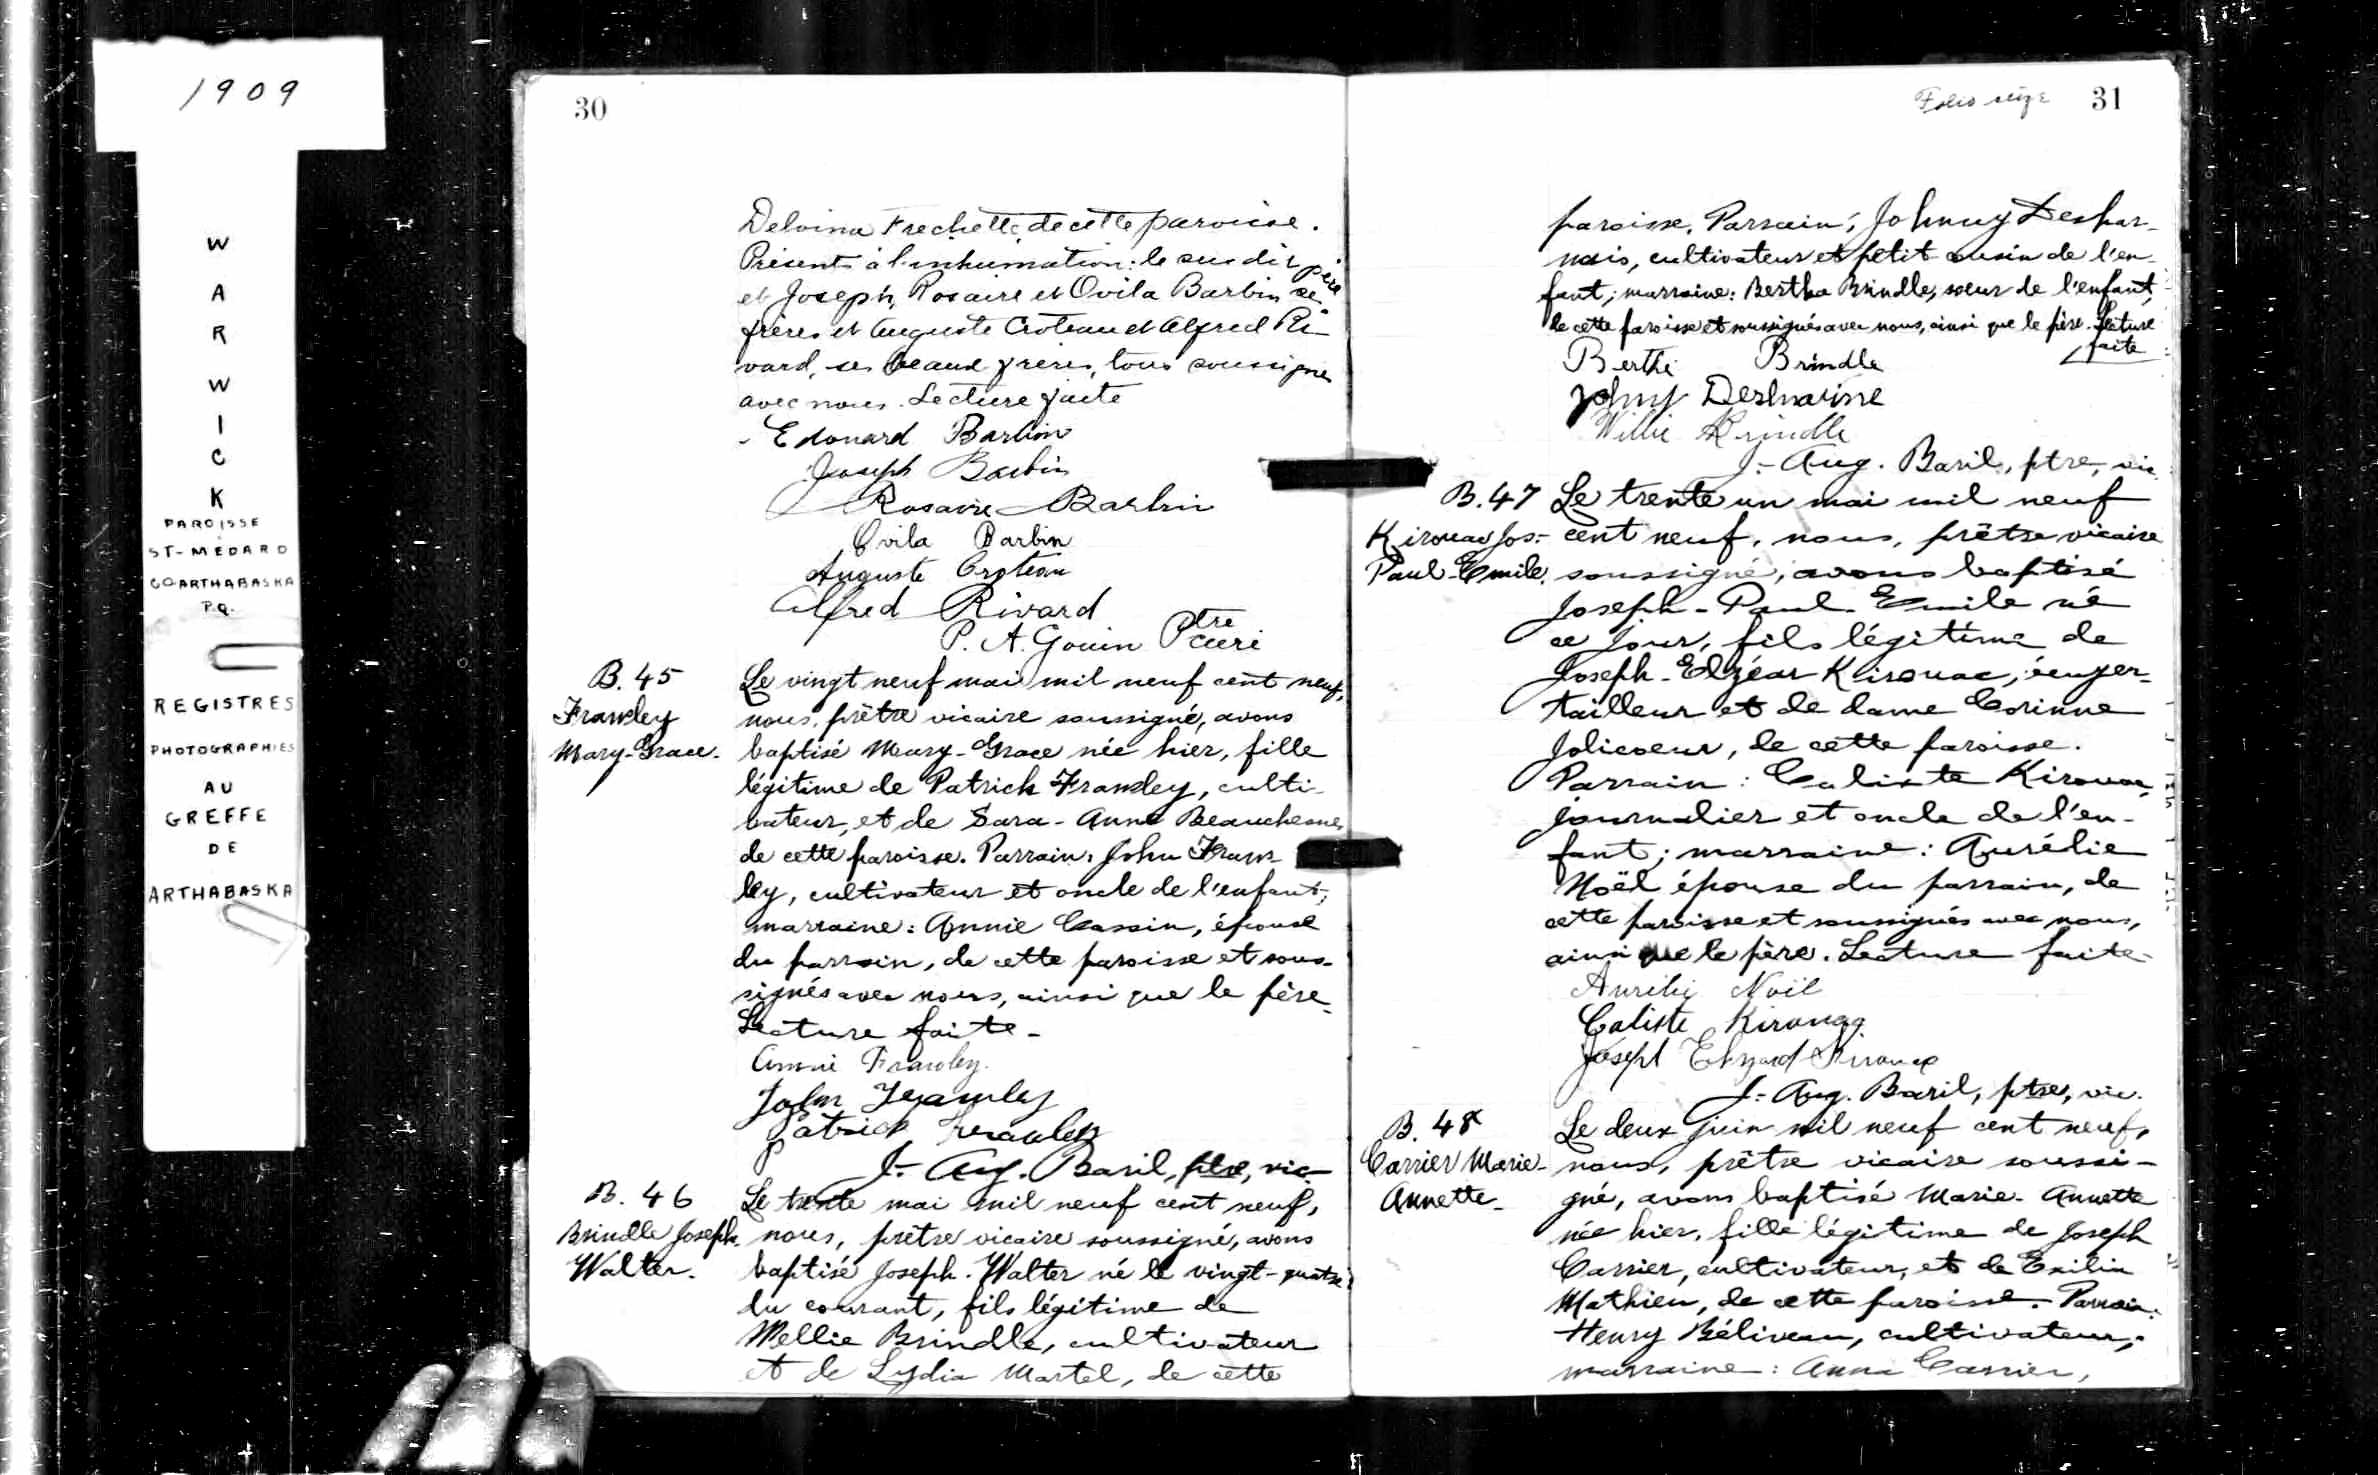 1909
WARWICK
PAROISSE
ST-MEDARD
CO ARTHABASKA
P.Q.
REGISTRES
PHOTOGRAPHIES
AU
GREFFE
DE
ARTHABASKA
30
Delvina Frechette, de cette paroisse.
Présents à l'inhumation: le susdit père
et Joseph, Rosaire et Ovila Barbin ses
frères et Auguste Croteau et Alfred Ri-
vard, ses beaux frères, tous soussignés
avec nous. Lecture faite
Edouard Barbin
Joseph Barbin
Rosaire Barbin
Ovila Barbin
Auguste Croteau
Alfred Rivard
P. A. Gouin Ptre curé
B. 45
Frawley
Mary-Grace.
Le vingt neuf mai mil neuf cent neuf,
nous, prêtre vicaire soussigné, avons
baptisé Mary-Grace née hier, fille
légitime de Patrick Frawley, culti-
vateur, et de Sara-Anna Beauchesne,
de cette paroisse. Parrain, John Fraw-
ley, cultivateur et oncle de l'enfant;
marraine: Annie Cassin, épouse
du parrain, de cette paroisse et sous-
signés avec nous, ainsi que le père.
Lecture faite-
Annie Frawley.
John Frawley
Patrick Frawley
J.- Aug. Baril, ptre, vic.
B. 46
Brindle Joseph.
Walter.
Le trente mai mil neuf cent neuf,
nous, prêtre vicaire soussigné, avons
baptisé Joseph-Walter né le vingt-quatre
du courant, fils légitime de
Wellie Brindle, cultivateur
et de Lydia Martel, de cette
Folio seize 31
paroisse. Parrain, Johnny Deshar-
nais, cultivateur et petit cousin de l'en-
fant; marraine: Bertha Brindle, soeur de l'enfant,
de cette paroisse et soussignés avec nous, ainsi que le père. Lecture
faite
Berthe Brindle
Johny Desharne
Willie Brindle
J.- Aug. Baril, ptre, vic.
B. 47
Kirouac Jos.-
Paul-Emile.
Le trente un mai mil neuf
cent neuf, nous, prêtre vicaire
soussigné, avons baptisé
Joseph-Paul-Emile né
ce jour, fils légitime de
Joseph-Elzéar Kirouac,
tailleur et de dame Corinne
Jolicoeur, de cette paroisse.
Parrain: Calixte Kirouac,
journalier et oncle de l'en-
fant; marraine: Aurélie
Noël épouse du parrain, de
cette paroisse et soussignés avec nous,
ainsi que le père. Lecture faite-
Aurélie Noël
Calixte Kirouac
Joseph Elzeard Kirouac
J.- Aug. Baril, ptre, vic.
B. 48
Carrier Marie-
Annette-
Le deux juin mil neuf cent neuf,
nous, prêtre vicaire soussi-
gné, avons baptisé Marie-Annette
née hier, fille légitime de Joseph
Carrier, cultivateur, et de Exilia
Mathieu, de cette paroisse. Parrain:
Henry Béliveau, cultivateur;
marraine: Anna Carrier,